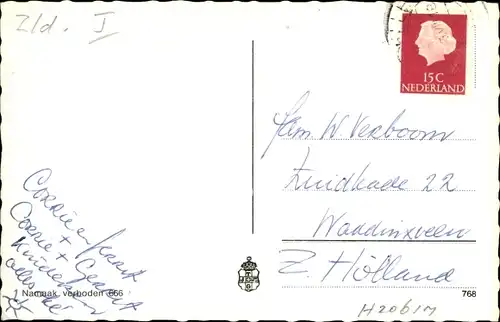 Zld. I
15 C
NEDERLAND
Fam. W. Verboom
Zuidkade 22
Waddinxveen
Z. Holland
Corrie
Corrie + Gerrit
Kinderen
Namaak verboden 666
768